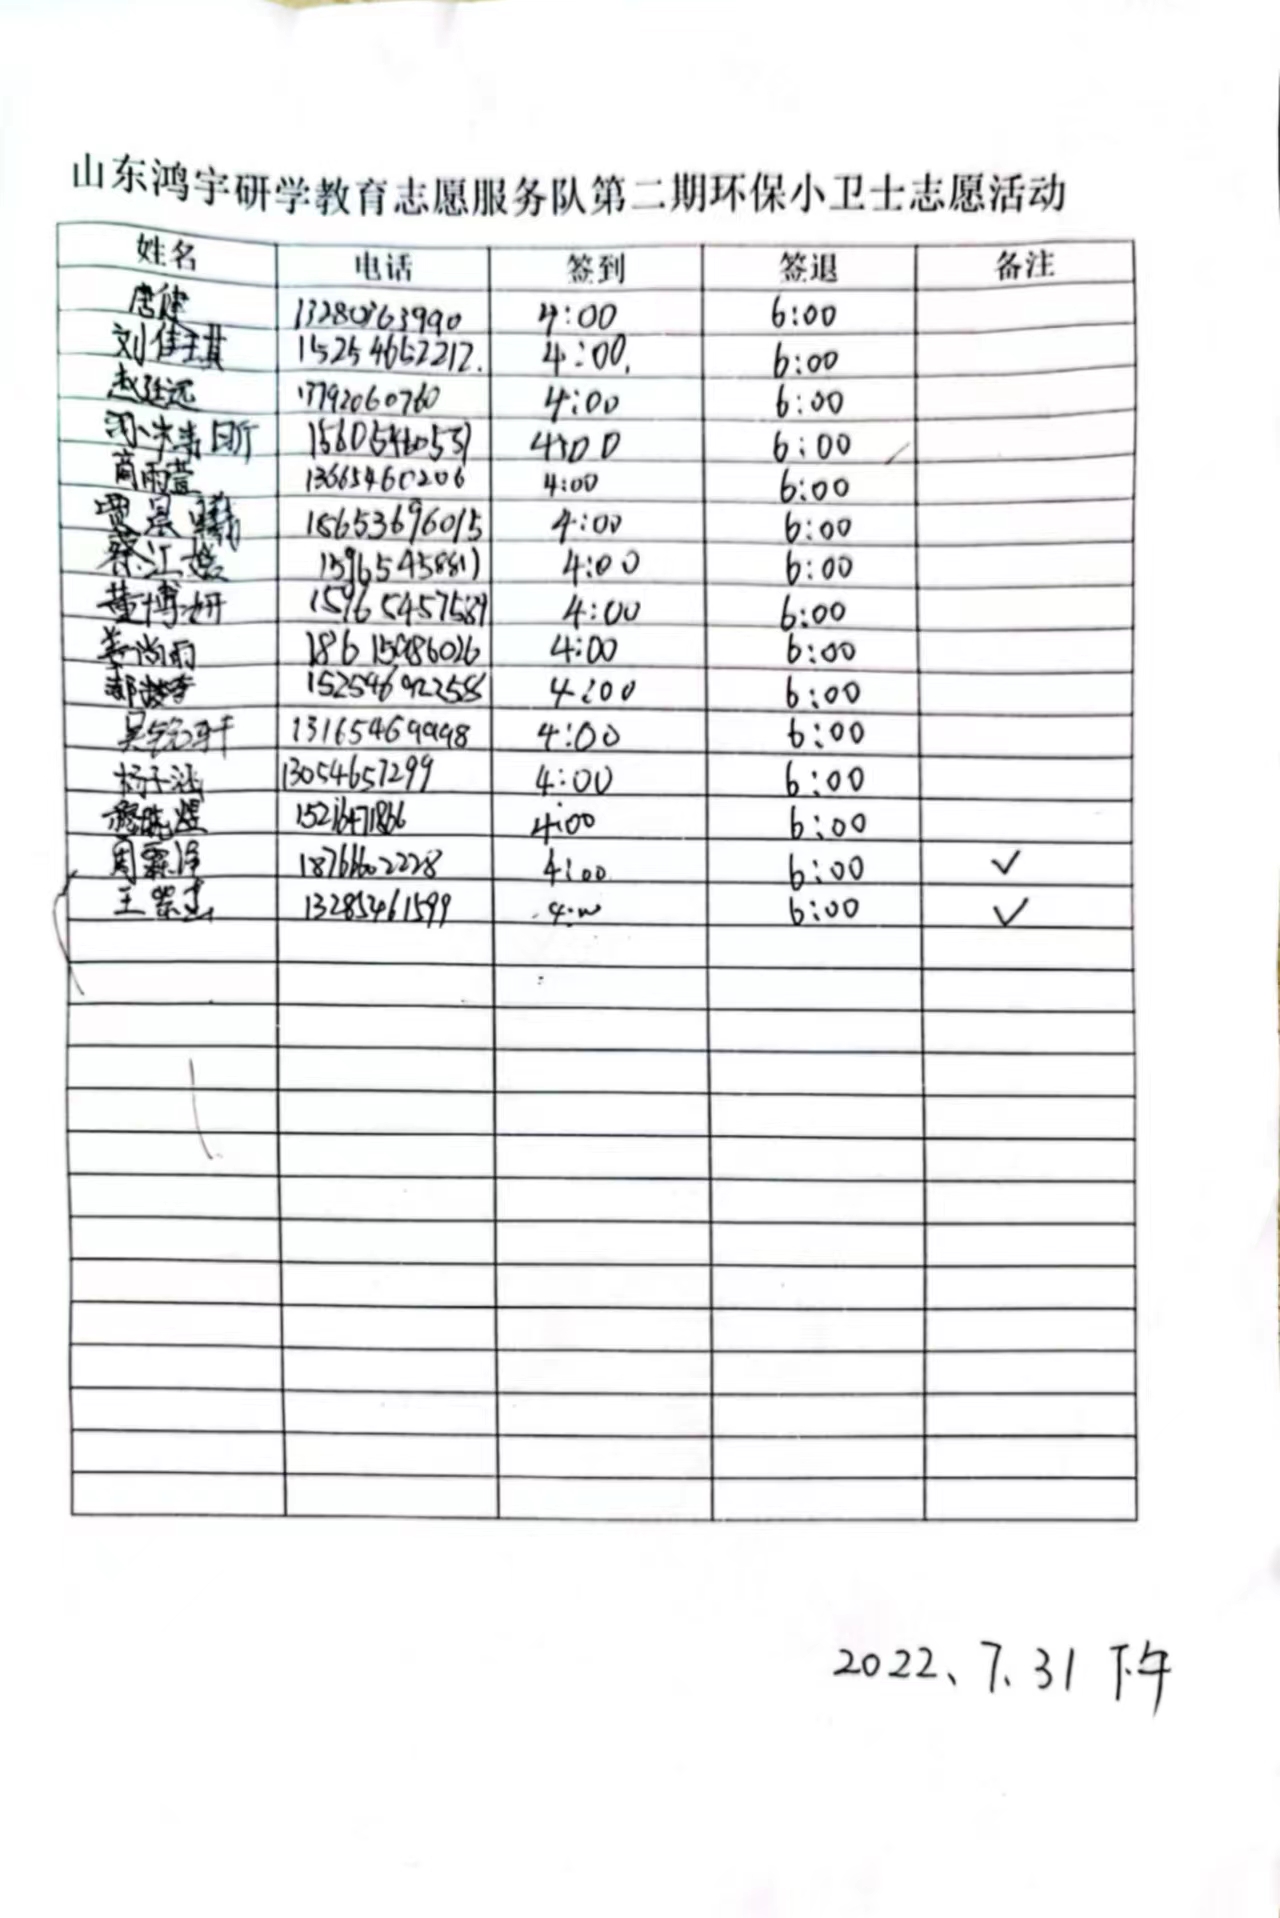 山东鸿宇研学教育志愿服务队第二期环保小卫士志愿活动
姓名 电话 签到 签退 备注
唐健 13280763990 4:00 6:00
刘佳琪 15254652212. 4:00. 6:00
赵廷远 17792060760 4:00 6:00
15605460531 4:00 6:00
商雨萱 13665460206 4:00 6:00
贾景曦 18653696015 4:00 6:00
蔡江 15965458811 4:00 6:00
董博妍 15965457589 4:00 6:00
姜尚雨 18615986026 4:00 6:00
郝 4:00 6:00
吴 13165469998 4:00 6:00
杨子涵 13054657299 4:00 6:00
4:00 6:00
周霖泽 18766602228 4:00 6:00 ✓
王 13285461599 4:00 6:00 ✓
2022、7、31 下午